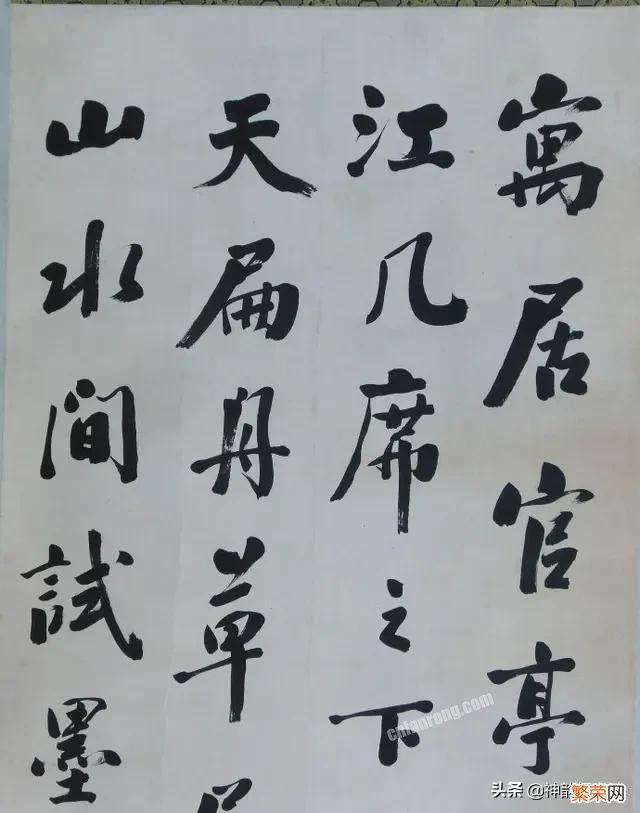 寓居官亭
江几席之下
天扁舟草
山水间試墨
cnfanrong.com
头条 @神韵
繁荣网